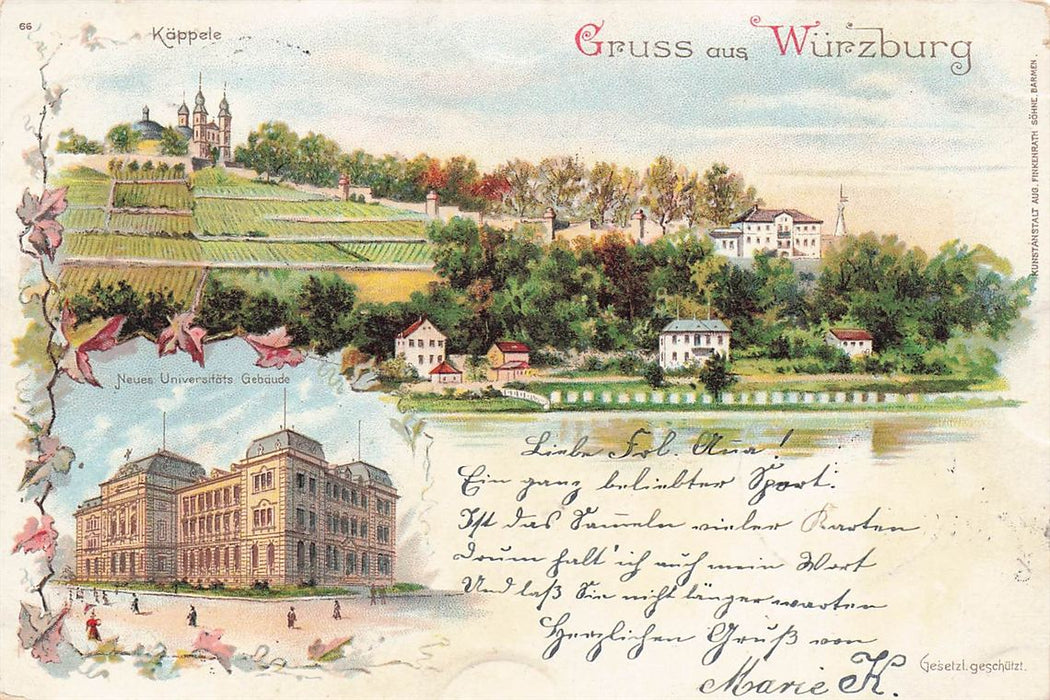 66
Käppele
Gruss aus Würzburg
KUNSTANSTALT AUG. FINKENRATH SÖHNE, BARMEN.
Neues Universitäts Gebäude
Liebe Frl. Anna!
Ein ganz beliebter Sport.
Ist das Sammeln vieler Karten
Drum halt' ich auch mein Wort
Und laß Sie nicht länger warten
Herzlichen Gruß von
Marie K.
Gesetzl. geschützt.